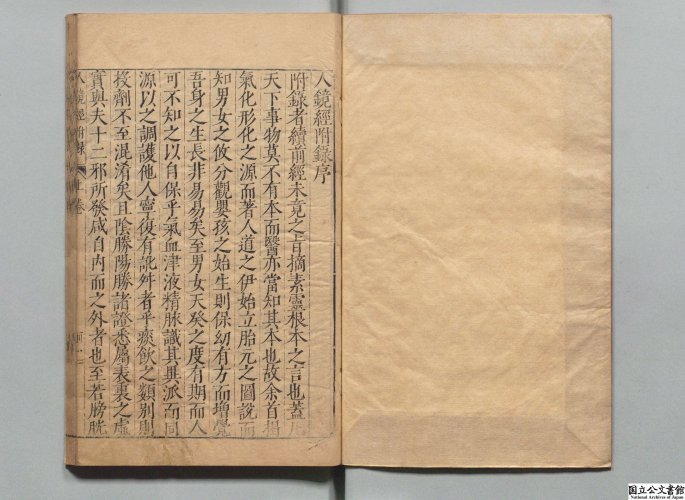 人鏡經附錄序
附錄者續前經未竟之旨摘素靈根本之言也蓋
天下事物莫不有本而醫亦當知其本也故余首揭
氣化形化之源而著人道之伊始立胎元之圖說而
知男女之攸分觀嬰孩之始生則保幼有方而增覺
吾身之生長非易易矣至男女天癸之度有期而人
可不知之以自保乎氣血津液精脉識其異派而同
源以之調護他人寧復有訛舛者乎痰飲之類別則
投劑不至混淆矣且陰勝陽勝諸證悉屬表裏之虛
實與夫十二邪所發咸自內而之外者也至若膀胱
人鏡經附錄 上卷
国立公文書館
National Archives of Japan